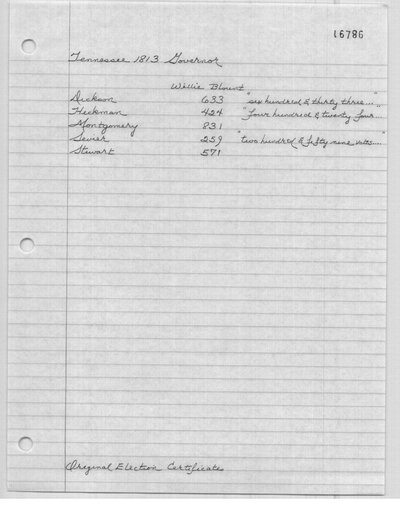 16786
Tennessee 1813 Governor
Willie Blount
Dickson 633 "six hundred & thirty three...."
Hickman 424 "Four hundred & twenty four...."
Montgomery 831
Sevier 259 "two hundred & fifty nine votes...."
Stewart 571
Original Election Certificate